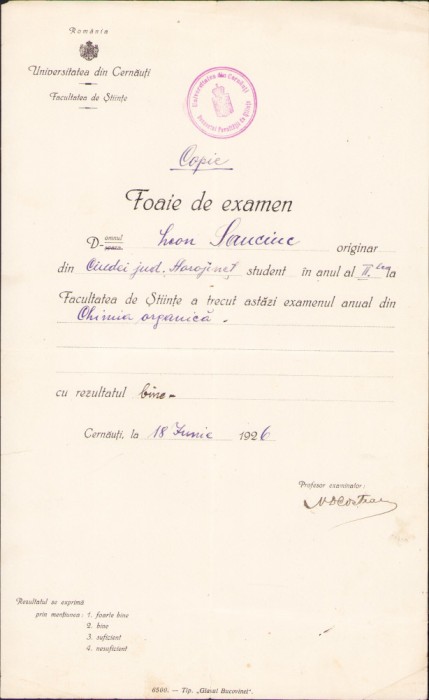 România
Universitatea din Cernăuți
Facultatea de Științe
Universitatea din Cernăuți
Decanatul Facultății de Științe
Copie
Foaie de examen
D-omnul
Leon Sauciuc originar
din Ciudei jud. Storojineț student în anul al II. lea la
Facultatea de Științe a trecut astăzi examenul anual din
Chimia organică.
cu rezultatul bine
Cernăuți, la 18 Iunie 1926
Profesor examinator:
Rezultatul se exprimă
prin mențiunea: 1. foarte bine
2. bine
3. suficient
4. nesuficient
6500. — Tip. „Glasul Bucovinei“.